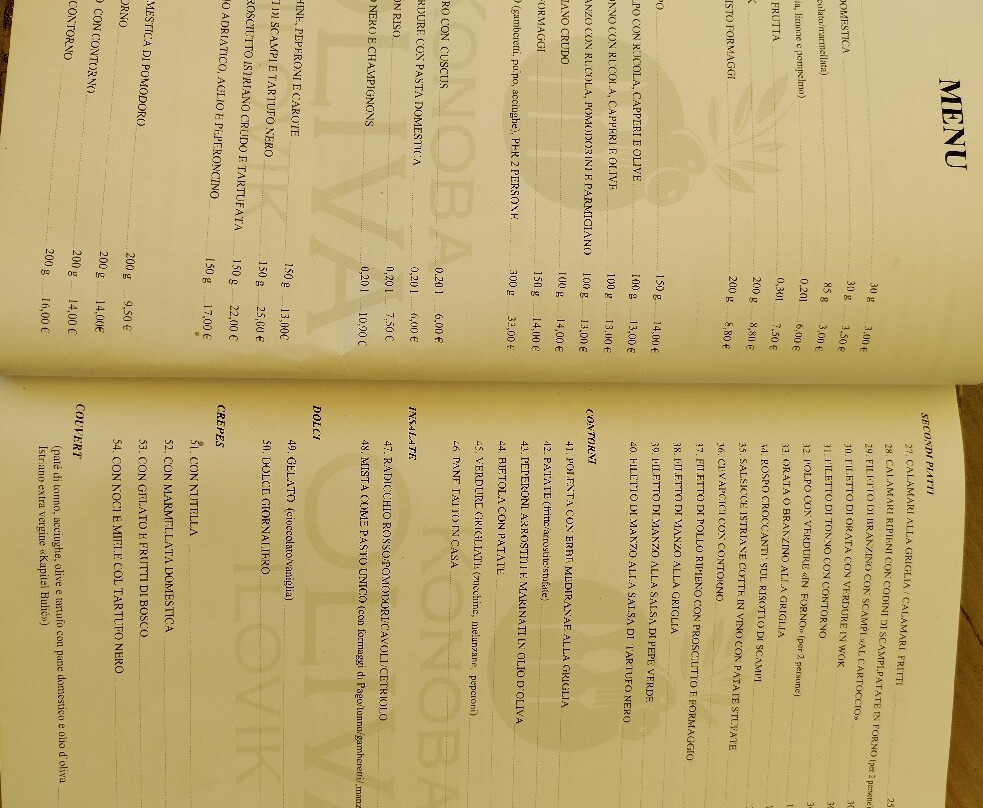 MENU
DOMESTICA 30 g 3,00 €
colato/marmellata) 30 g 3,50 €
85 g 3,00 €
limone e pompelmo) 0,20 l 6,00 €
FRUTTA 0,30 l 7,50 €
200 g 8,80 €
ISTO FORMAGGI 200 g 8,80 €
PO 150 g 14,00 €
PO CON RUCOLA, CAPPERI E OLIVE 100 g 13,00 €
ONNO CON RUCOLA, CAPPERI E OLIVE 100 g 13,00 €
ANZO CON RUCOLA, POMODORINI E PARMIGIANO 100 g 13,00 €
IANO CRUDO 100 g 14,00 €
FORMAGGI 150 g 14,00 €
O (gamberetti, pulpo, acciughe), PER 2 PERSONE 300 g 33,00 €
RO CON CUSCUS 0,20 l 6,00 €
RDURE CON PASTA DOMESTICA 0,20 l 6,00 €
ON RISO 0,20 l 7,50 €
NERO E CHAMPIGNONS 0,20 l 10,90 €
INE, PEPERONI E CAROTE 150 g 13,00€
I DI SCAMPI E TARTUFO NERO 150 g 25,00 €
ROSCIUTTO ISTRIANO CRUDO E TARTUFATA 150 g 22,00 €
O ADRIATICO, AGLIO E PEPERONCINO 150 g 17,00 €
MESTICA DI POMODORO
ORNO 200 g 9,50 €
O CON CONTORNO 200 g 14,00€
CONTORNO 200 g 14,00 €
200 g 16,00 €
SECONDI PIATTI
27. CALAMARI ALLA GRIGLIA / CALAMARI FRITTI
28. CALAMARI RIPIENI CON CODINI DI SCAMPI,PATATE IN FORNO (per 2 persone)
29. FILETTO DI BRANZINO CON SCAMPI »AL CARTOCCIO»
30. FILETTO DI ORATA CON VERDURE IN WOK
31. FILETTO DI TONNO CON CONTORNO
32. POLPO CON VERDURE «IN FORNO» (per 2 persone)
33. ORATA O BRANZINO ALLA GRIGLIA
34. ROSPO CROCCANTE SUL RISOTTO DI SCAMPI
35. SALSICCE ISTRIANE COTTE IN VINO CON PATATE STUFATE
36. CEVAPCICI CON CONTORNO
37. FILETTO DI POLLO RIPIENO CON PROSCIUTTO E FORMAGGIO
38. FILETTO DI MANZO ALLA GRIGLIA
39. FILETTO DI MANZO ALLA SALSA DI PEPE VERDE
40. FILETTO DI MANZO ALLA SALSA DI TARTUFO NERO
CONTORNI
41. POLENTA CON ERBE MEDIRANAE ALLA GRIGLIA
42. PATATE (fritte/arrostite/stufate)
43. PEPERONI ARROSTITI E MARINATI IN OLIO D'OLIVA
44. BIETOLA CON PATATE
45. VERDURE GRIGLIATE (zucchine, melanzane, peperoni)
46. PANE FATTO IN CASA
INSALATE
47. RADICCHIO ROSSO/POMODORI/CAVOLI/CETRIOLO
48. MISTA COME PASTO UNICO (con formaggi di Pago/tonno/gamberetti/manz
DOLCI
49. GELATO (cioccolato/vaniglia)
50. DOLCE GIORNALIERO
CREPES
51. CON NUTELLA
52. CON MARMELLATA DOMESTICA
53. CON GELATO E FRUTTI DI BOSCO
54. CON NOCI E MIELE COL TARTUFO NERO
COUVERT
(paté di tonno, acciughe, olive e tartufo con pane domestico e olio d'oliva
Istriano extra vergine «Kapitel Bulić»)
KONOBA
OLIVA
FILOVIK